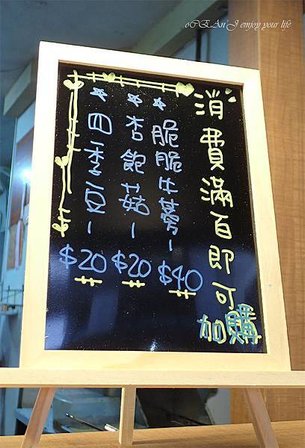 oCEAnJ enjoy your life
消費滿百即可
加購
脆脆牛蒡－
$40
杏鮑菇－
$20
四季豆－
$20